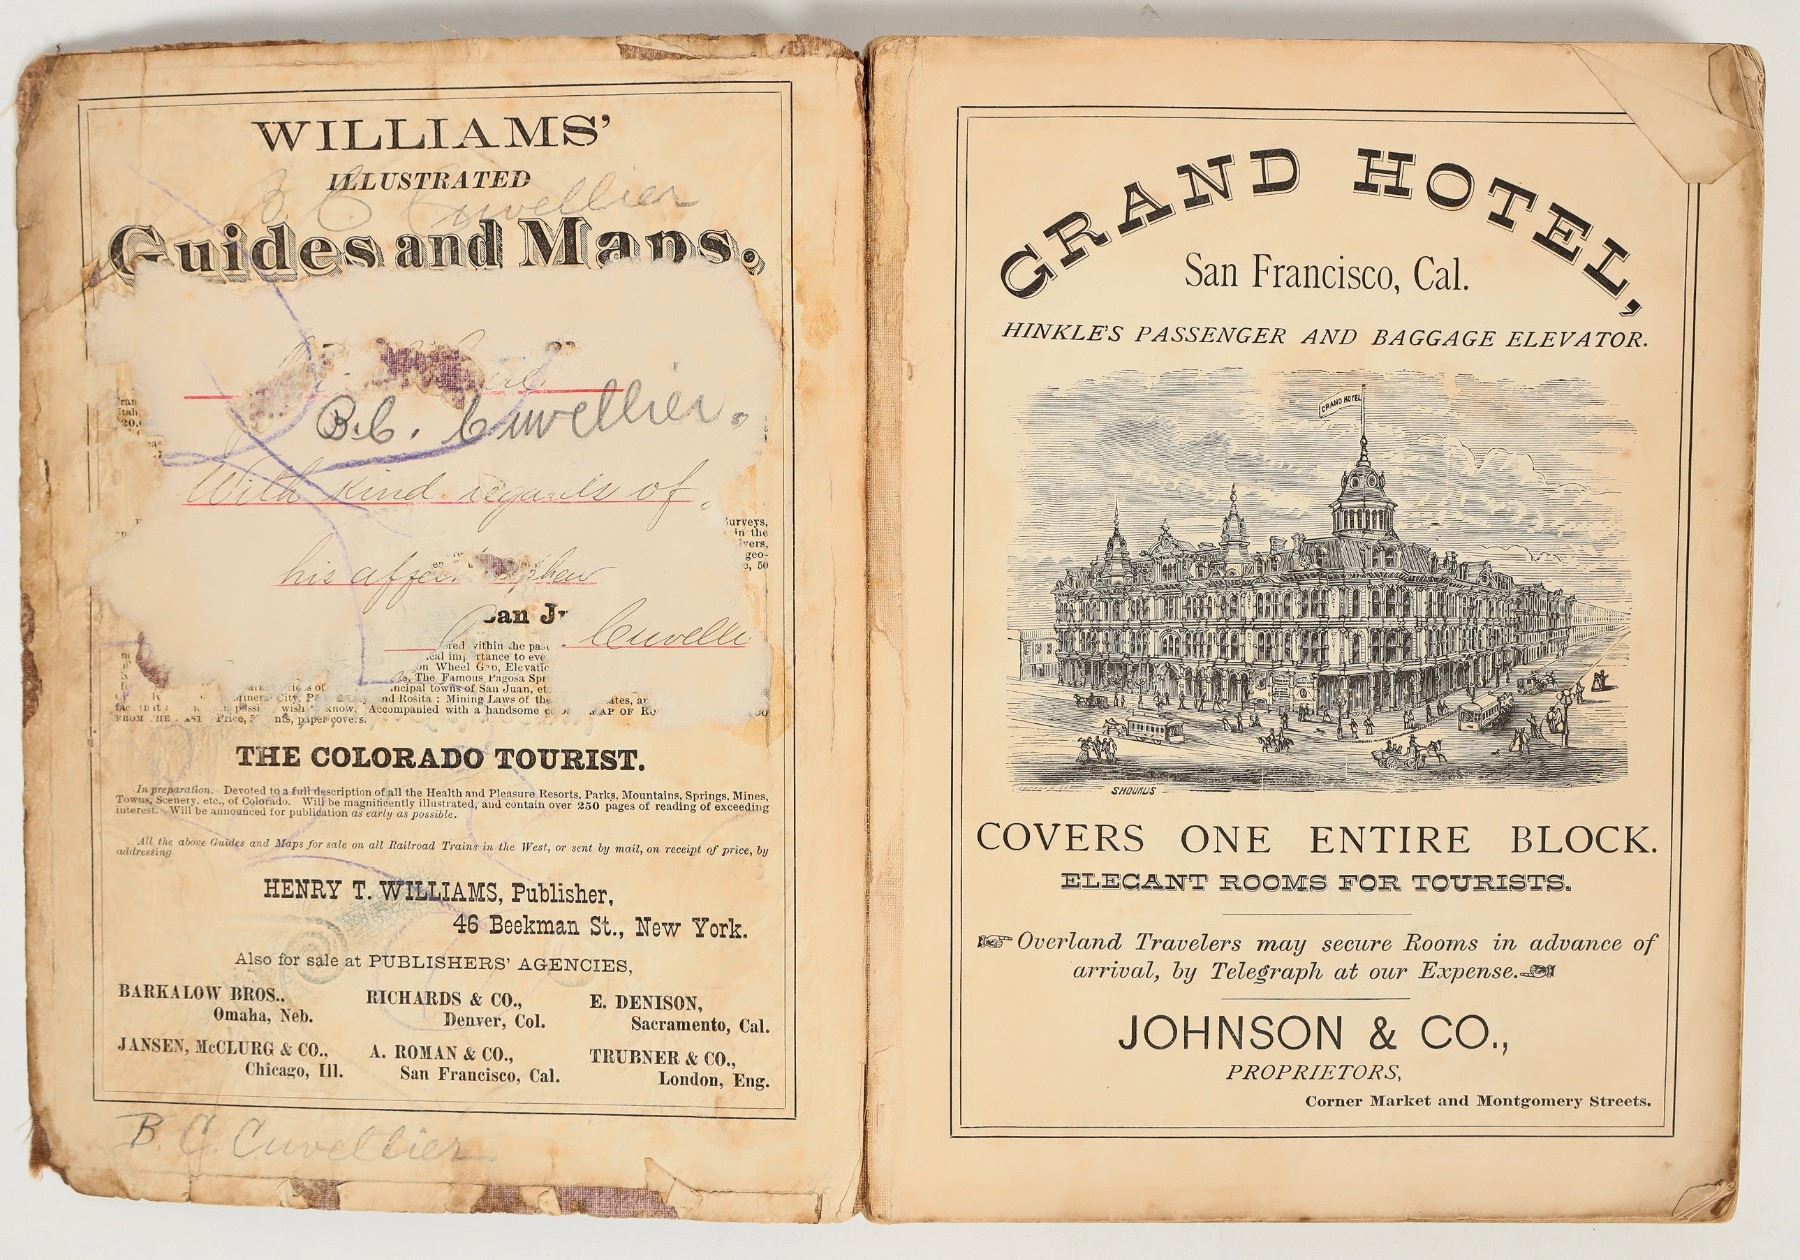 WILLIAMS'
ILLUSTRATED
Guides and Maps.
B. C. Cuvellier
B. C. Cuvellier.
With kind regards of
his nephew
Cuvelli
urveys,
in the
geo-
50
San J
ored within the pas
ical importance to eve
on Wheel Gap, Elevatio
The Famous Pagosa Spr
ncipal towns of San Juan, et
nd Rosita; Mining Laws of the
wish know, Accompanied with a handsome MAP OF
Price, paper covers.
THE COLORADO TOURIST.
In preparation. Devoted to a full description of all the Health and Pleasure Resorts, Parks, Mountains, Springs, Mines,
Towns, Scenery, etc., of Colorado. Will be magnificently illustrated, and contain over 250 pages of reading of exceeding
interest. Will be announced for publication as early as possible.
All the above Guides and Maps for sale on all Railroad Trains in the West, or sent by mail, on receipt of price, by
addressing
HENRY T. WILLIAMS, Publisher,
46 Beekman St., New York.
Also for sale at PUBLISHERS' AGENCIES,
BARKALOW BROS., Omaha, Neb.
RICHARDS & CO., Denver, Col.
E. DENISON, Sacramento, Cal.
JANSEN, McCLURG & CO., Chicago, Ill.
A. ROMAN & CO., San Francisco, Cal.
TRUBNER & CO., London, Eng.
B. C. Cuvellier
GRAND HOTEL,
San Francisco, Cal.
HINKLE'S PASSENGER AND BAGGAGE ELEVATOR.
GRAND HOTEL
SHOURUS
COVERS ONE ENTIRE BLOCK.
ELEGANT ROOMS FOR TOURISTS.
Overland Travelers may secure Rooms in advance of
arrival, by Telegraph at our Expense.
JOHNSON & CO.,
PROPRIETORS,
Corner Market and Montgomery Streets.